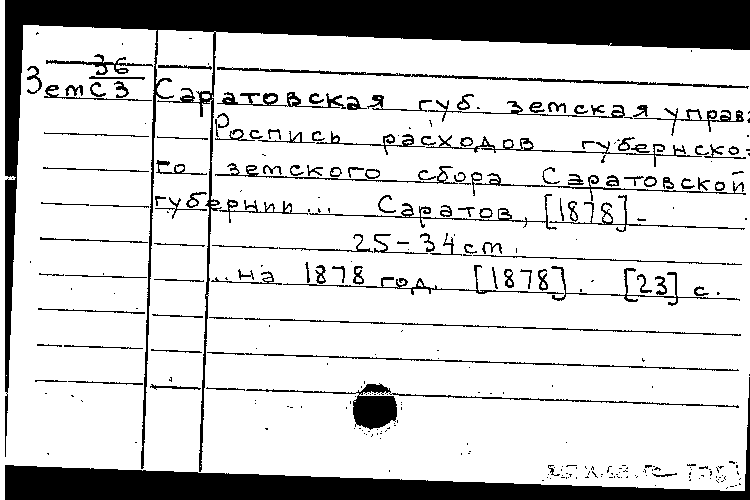 36
Зем С3 Саратовская губ. земская управа
Роспись расходов губернско-
го земского сбора Саратовской
губернии... Саратов, [1878]-
25-34 cm.
...на 1878 год. [1878]. [23] с.